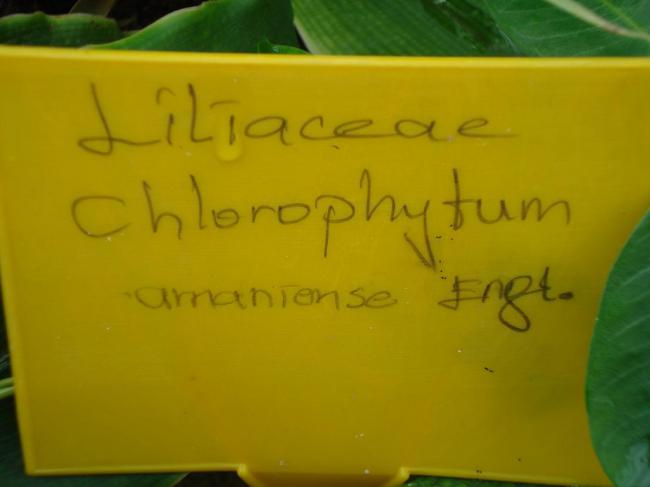 Liliaceae
Chlorophytum
amaniense Engl.